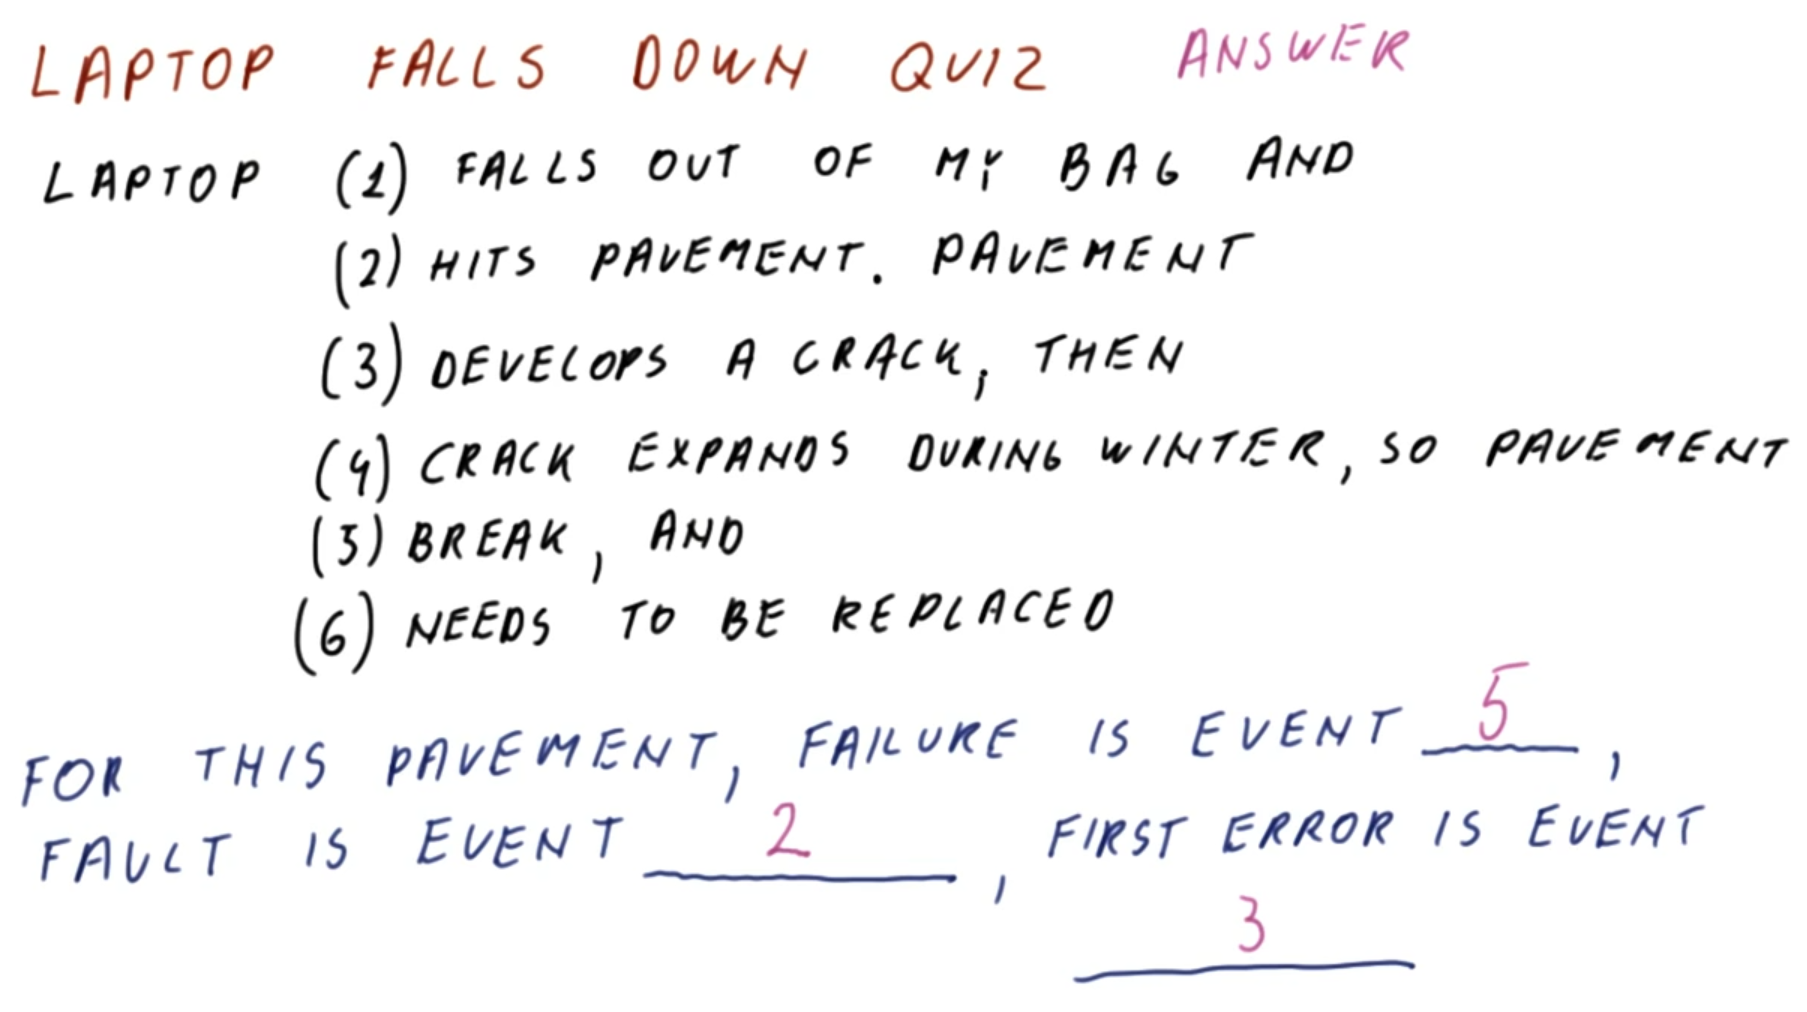 LAPTOP FALLS DOWN QUIZ ANSWER
LAPTOP (1) FALLS OUT OF MY BAG AND
(2) HITS PAVEMENT. PAVEMENT
(3) DEVELOPS A CRACK, THEN
(4) CRACK EXPANDS DURING WINTER, SO PAVEMENT
(5) BREAK, AND
(6) NEEDS TO BE REPLACED
FOR THIS PAVEMENT, FAILURE IS EVENT 5,
FAULT IS EVENT 2, FIRST ERROR IS EVENT
3